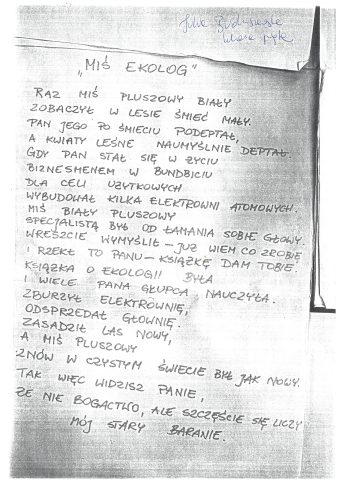 „MIŚ EKOLOG"
RAZ MIŚ PLUSZOWY BIAŁY
ZOBACZYŁ W LESIE ŚMIEĆ MAŁY.
PAN JEGO PO ŚMIECIU PODEPTAŁ,
A KWIATY LEŚNE NAUMYŚLNIE DEPTAŁ.
GDY PAN STAŁ SIĘ W ŻYCIU
BIZNESMENEM W BUNDBICIU
DLA CELI UŻYTKOWYCH
WYBUDOWAŁ KILKA ELEKTROWNI ATOMOWYCH.
MIŚ BIAŁY PLUSZOWY
SPECJALISTĄ BYŁ OD ŁAMANIA SOBIE GŁOWY.
WRESZCIE WYMYŚLIŁ – JUŻ WIEM CO ZROBIĘ
I RZEKŁ TO PANU – KSIĄŻKĘ DAM TOBIE.
KSIĄŻKA O EKOLOGII BYŁA
I WIELE PANA GŁUPCA NAUCZYŁA.
ZBURZYŁ ELEKTROWNIĘ,
ODSPRZEDAŁ GŁOWNIĘ.
ZASADZIŁ LAS NOWY,
A MIŚ PLUSZOWY
ZNÓW W CZYSTYM ŚWIECIE BYŁ JAK NOWY.
TAK WIĘC WIDZISZ PANIE,
ŻE NIE BOGACTWO, ALE SZCZĘŚCIE SIĘ LICZY
MÓJ STARY BARANIE.